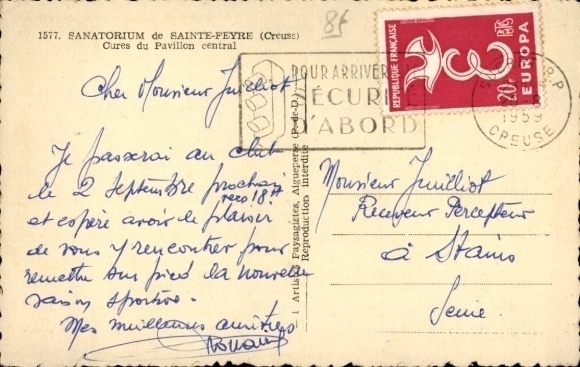 1577. SANATORIUM de SAINTE-FEYRE (Creuse)
Cures du Pavillon central
8f
Cher Monsieur Juilliot
Je passerai au club
le 2 Septembre prochain
vers 18h
et espère avoir le plaisir
de vous y rencontrer pour
remettre sur pied la nouvelle
saison sportive.
Mes meilleures amitiés
Artistes Paysagistes, Aigueperse (P.-de-D.)
Reproduction interdite
POUR ARRIVER
SÉCURITÉ
D'ABORD
REPUBLIQUE FRANÇAISE
20F
POSTES
EUROPA
1959
CREUSE
Monsieur Juilliot
Receveur Percepteur
à Stains
Seine.